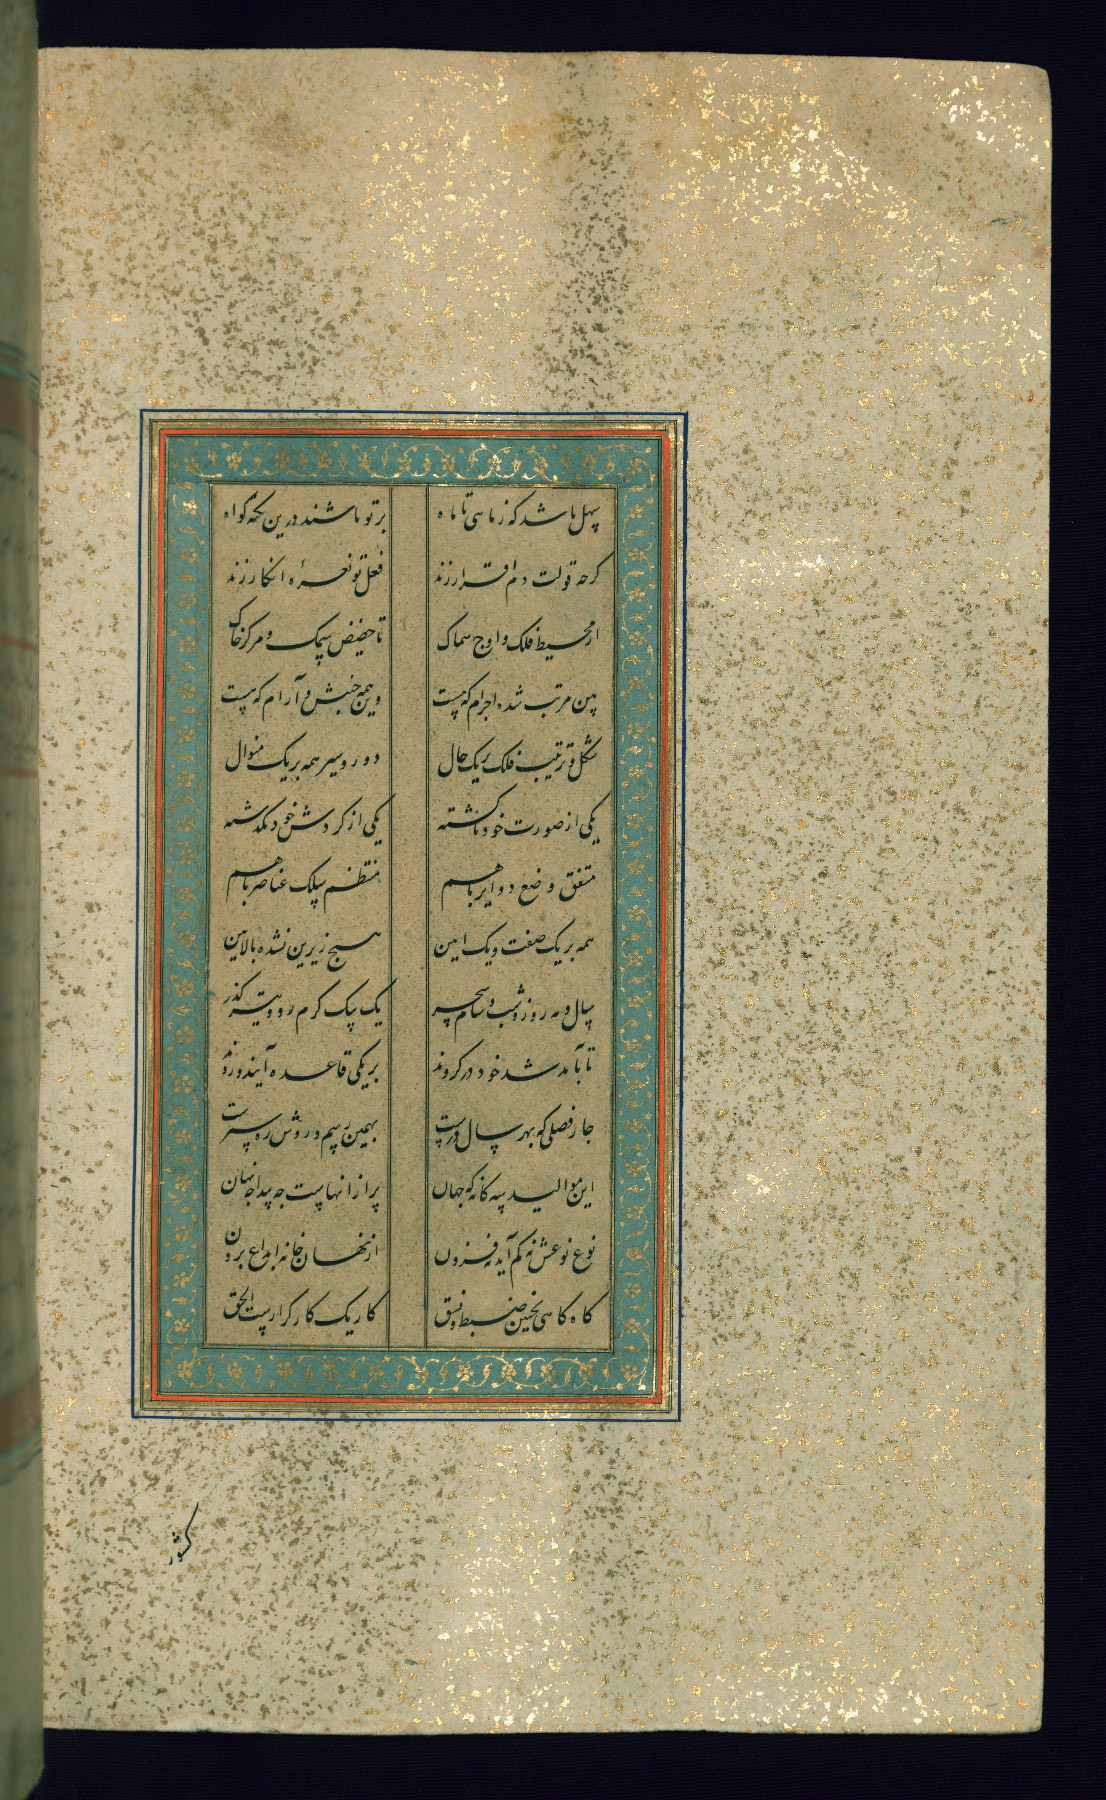 سهل باشد که ز ماهی تا ماه بر تو باشند درین نکته گواه
کرچه قولت دم اقرار زند فعل تو نعرهٔ انکار زند
از محیط فلک و اوج سماک تا حضیض سمک و مرکز خاک
بین مرتب شده اجرام که هست وین همه جنبش و آرام که هست
شکل و ترتیب فلک بر یک حال دور و سیر همه بر یک منوال
یکی از صورت خود ناکشته یکی از کردش خود نکذشته
متفق وضع دوایر با هم منتظم سلک عناصر با هم
همه بر یک صفت و یک آیین هیچ زیرین نشده بالایین
سال و مه روز و شب و شام و سحر یک بیک کرم رو و تیز کذر
تا بآمد شد خود در کروند بر یکی قاعده آیند و روند
چار فصلی که بهر سال درست بهمین رسم و روش ره سپرست
این موالید سه کانه که جهان پر از انهاست چه پیدا چه نهان
نوع نوعش نه کم آید نه فزون از نهانخانه ابداع برون
کاه کاهی نخیزن ضبط و نسق کار یک کارکرارست الحق
کشور